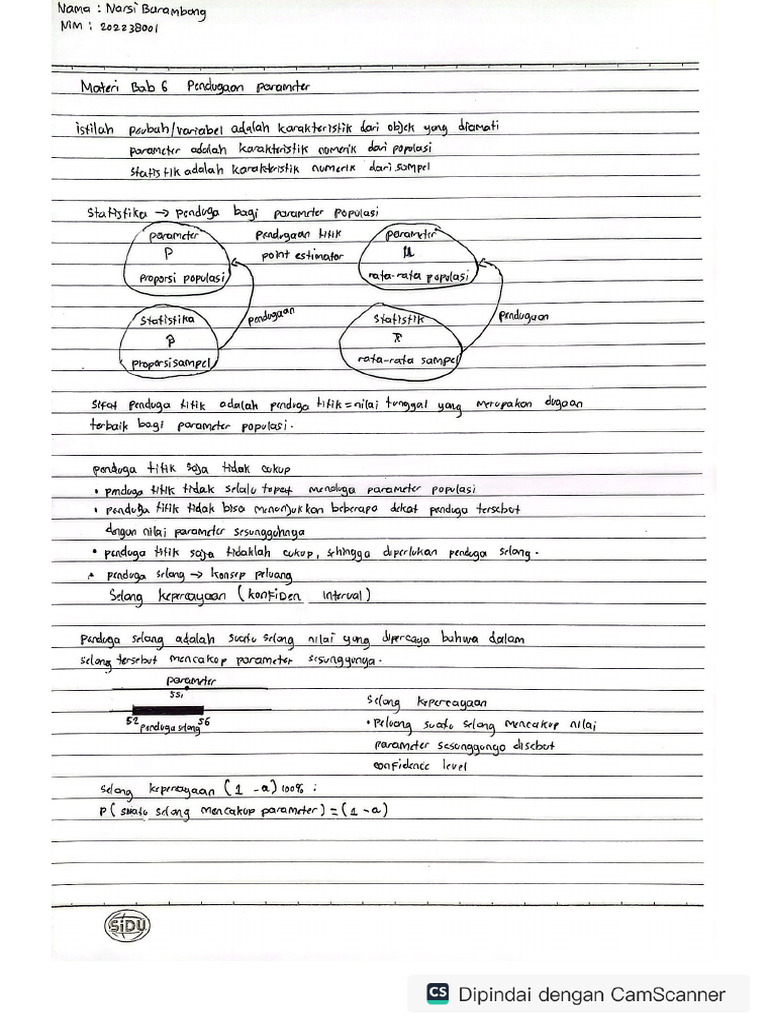 Nama : Narsi Burambong
NIM : 202238001
Materi Bab 6 Pendugaan parameter
istilah peubah/variabel adalah karakteristik dari objek yang diamati
parameter adalah karakteristik numerik dari populasi
Statistik adalah karakteristik numerik dari sampel
Statistika → penduga bagi parameter populasi
parameter
P
proporsi populasi
Pendugaan titik
point estimator
parameter
μ
rata-rata populasi
Statistika
p
proporsi sampel
pendugaan
Statistik
x̄
rata-rata sampel
pendugaan
Sifat penduga titik adalah penduga titik = nilai tunggal yang merupakan dugaan
terbaik bagi parameter populasi.
penduga titik saja tidak cukup
• penduga titik tidak selalu tepat menduga parameter populasi
• penduga titik tidak bisa menunjukkan beberapa dekat penduga tersebut
dengan nilai parameter sesungguhnya
• penduga titik saja tidaklah cukup, sehingga diperlukan penduga selang.
• penduga selang → konsep peluang
Selang kepercayaan (konfiden interval)
penduga selang adalah suatu selang nilai yang dipercaya bahwa dalam
selang tersebut mencakup parameter sesunggunya.
parameter
55,
52 56
penduga selang
Selang kepercayaan
• Peluang suatu selang mencakup nilai
parameter sesunggunya disebut
confidence level
Selang kepercayaan (1 - a) 100% :
P (suatu selang mencakup parameter) = (1 - a)
SiDU
CS Dipindai dengan CamScanner